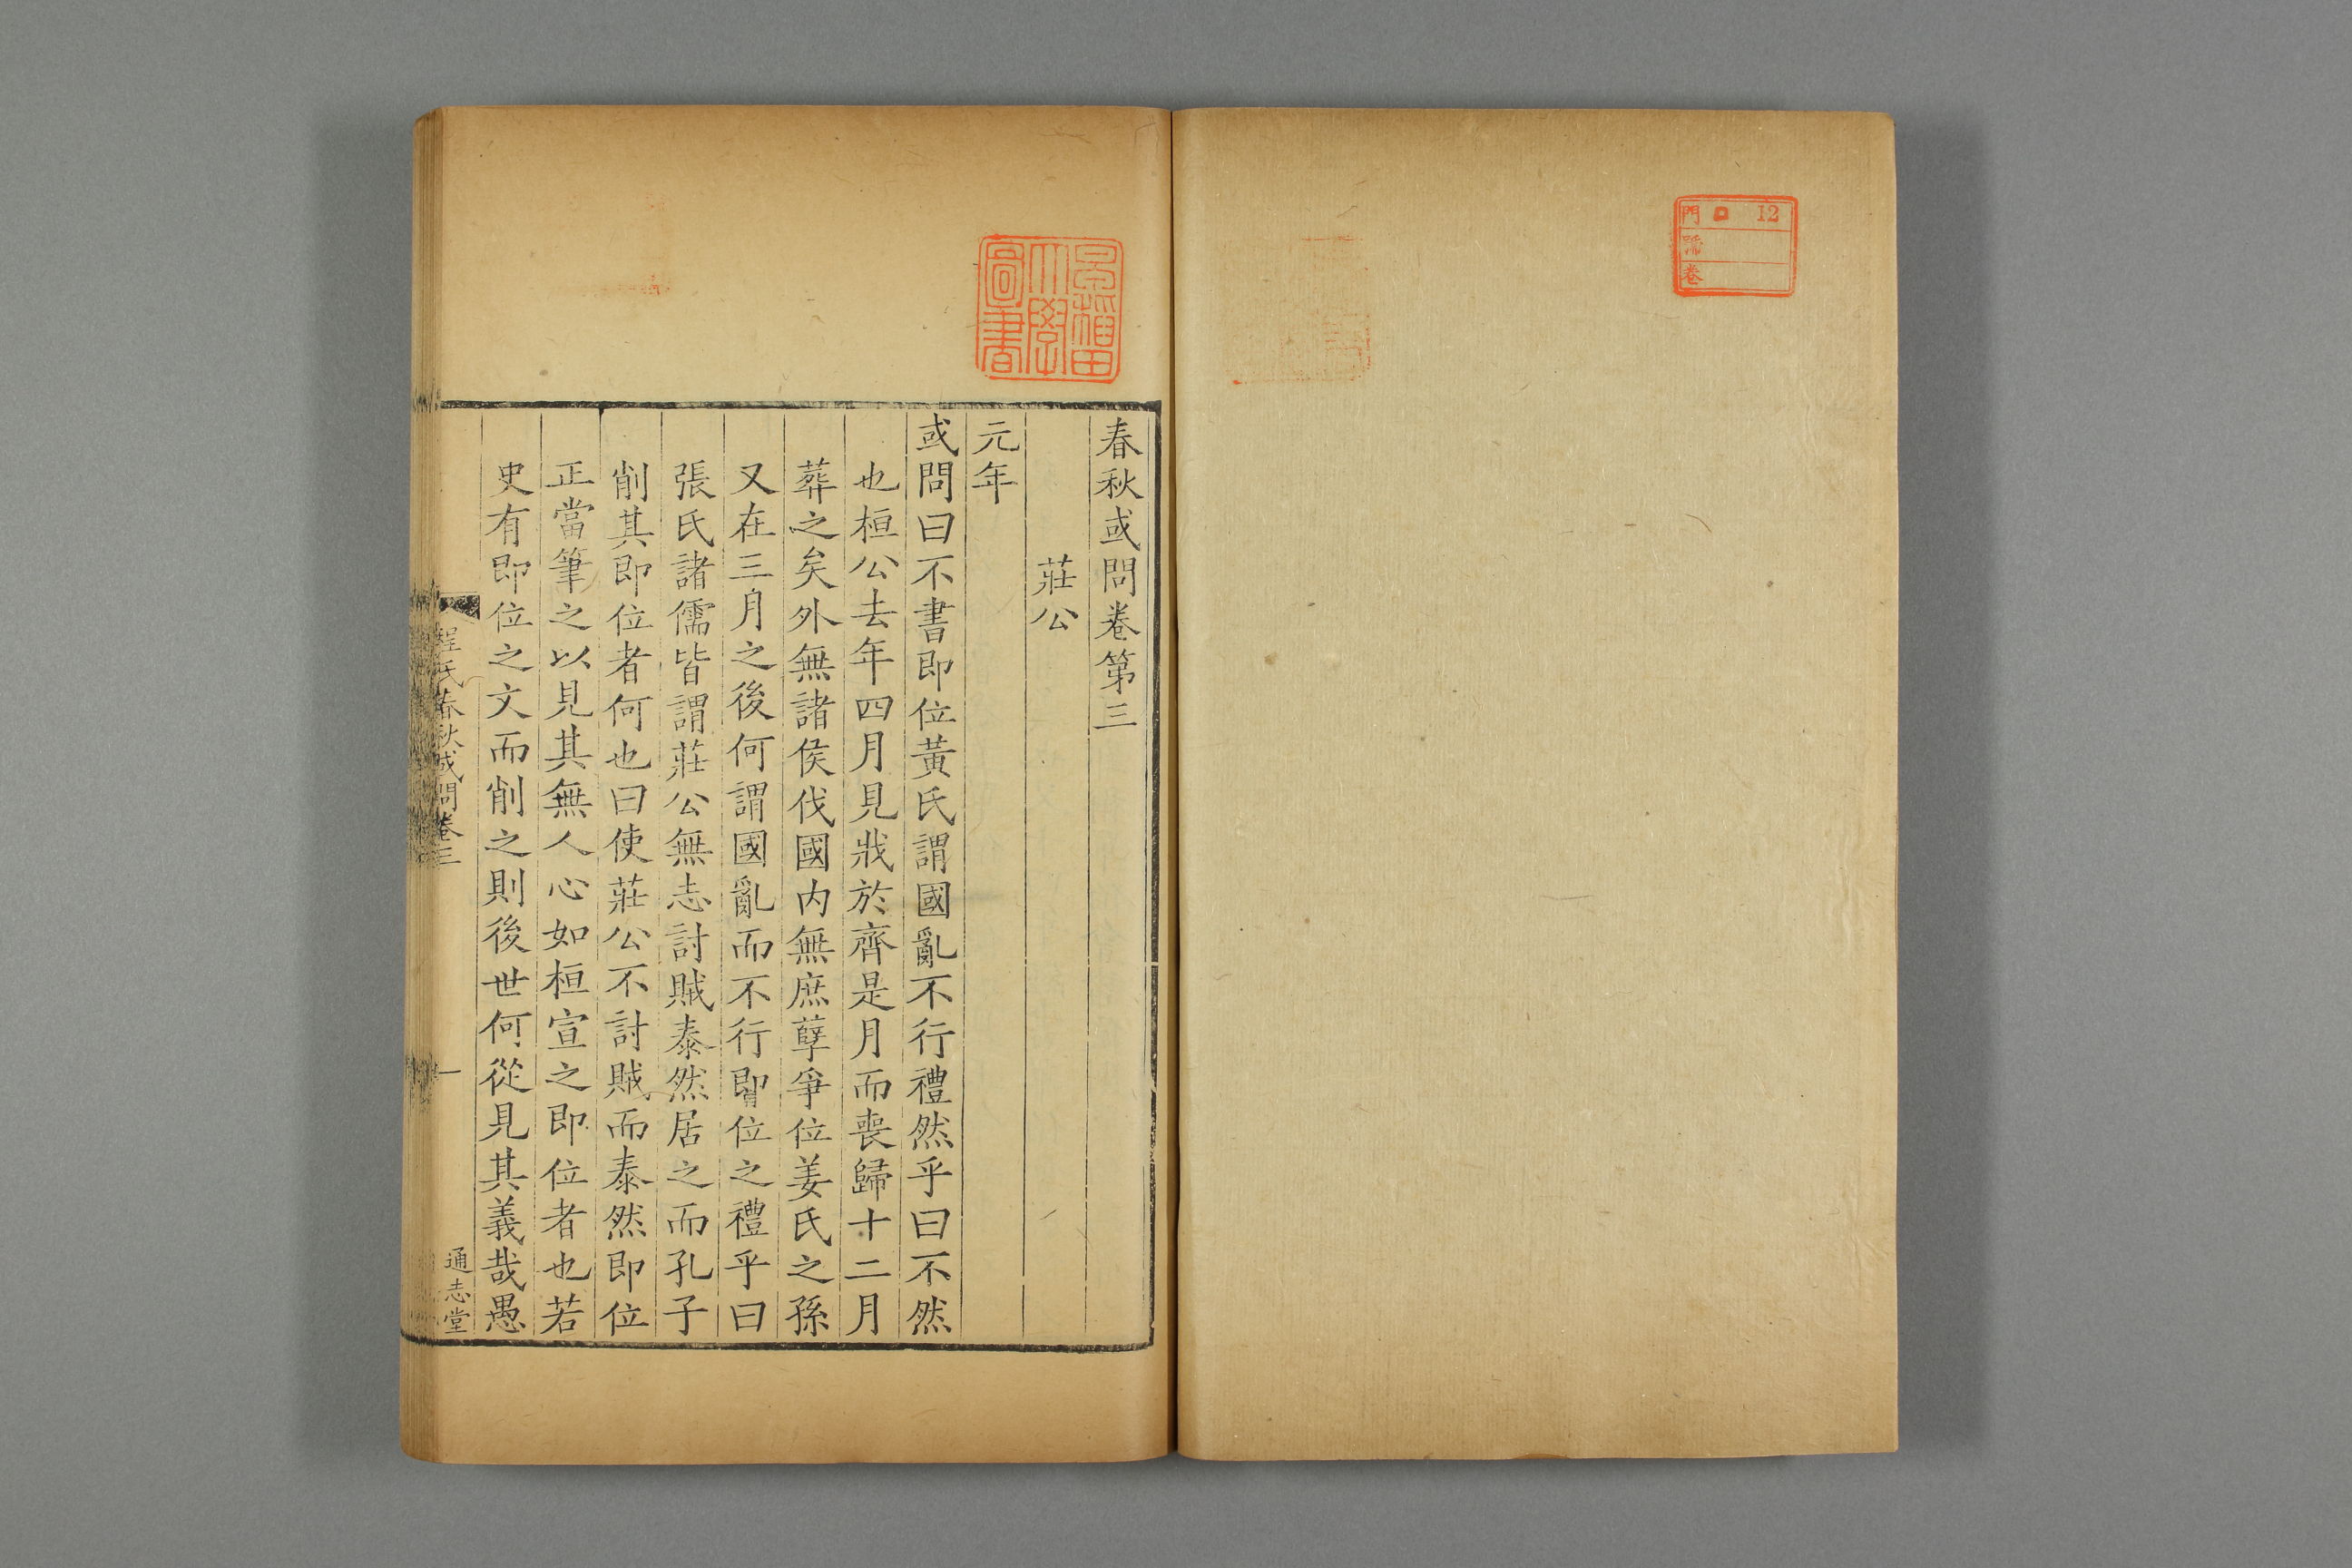 門 12
號
卷
早稻田大學圖書
春秋或問卷第三
莊公
元年
或問曰不書即位黃氏謂國亂不行禮然乎曰不然
也桓公去年四月見戕於齊是月而喪歸十二月
葬之矣外無諸侯伐國内無庶孽爭位姜氏之孫
又在三月之後何謂國亂而不行即位之禮乎曰
張氏諸儒皆謂莊公無志討賊泰然居之而孔子
削其即位者何也曰使莊公不討賊而泰然即位
正當筆之以見其無人心如桓宣之即位者也若
史有即位之文而削之則後世何從見其義哉愚
程氏春秋或問卷三
一
通志堂